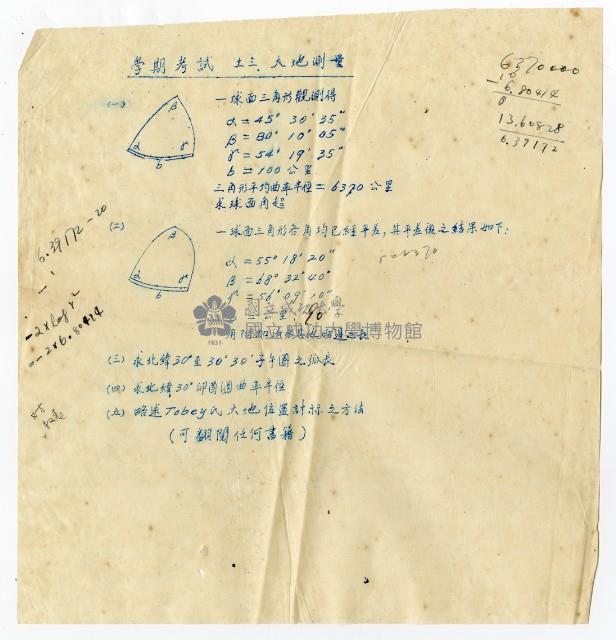 學期考試 土三 大地測量
(一) 一球面三角形觀測得
α = 45° 30' 35"
β = 80° 10' 05"
γ = 54° 19' 35"
b = 100 公里
三角形平均曲率半徑 = 6370 公里
求球面角超
β
α γ
b
6370000
6.80414
0
13.60828
6.39172
(二) 一球面三角形各角均已經平差,其平差後之結果如下:
α = 55° 18' 20"
β = 68° 32' 40"
γ = 56° 09'
β
α γ
b
6.39172-20
-2×log r²
=-2×6.80414
國立成功大學
國立成功大學博物館
1931
(三) 求北緯30°至30°30'子午圈之弧長
(四) 求北緯30°卯酉圈曲率半徑
(五) 略述Tobey氏大地位置計祘之方法
(可翻閱任何書籍)